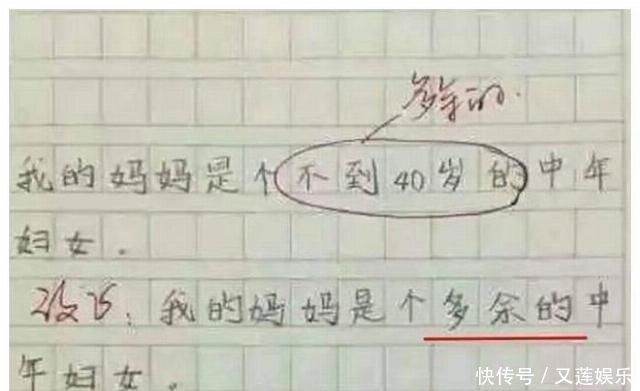 多余的.
我的妈妈是个不到40岁的中年
妇女.
改巧：我的妈妈是个多余的中
年妇女.
快传号/又莲娱乐